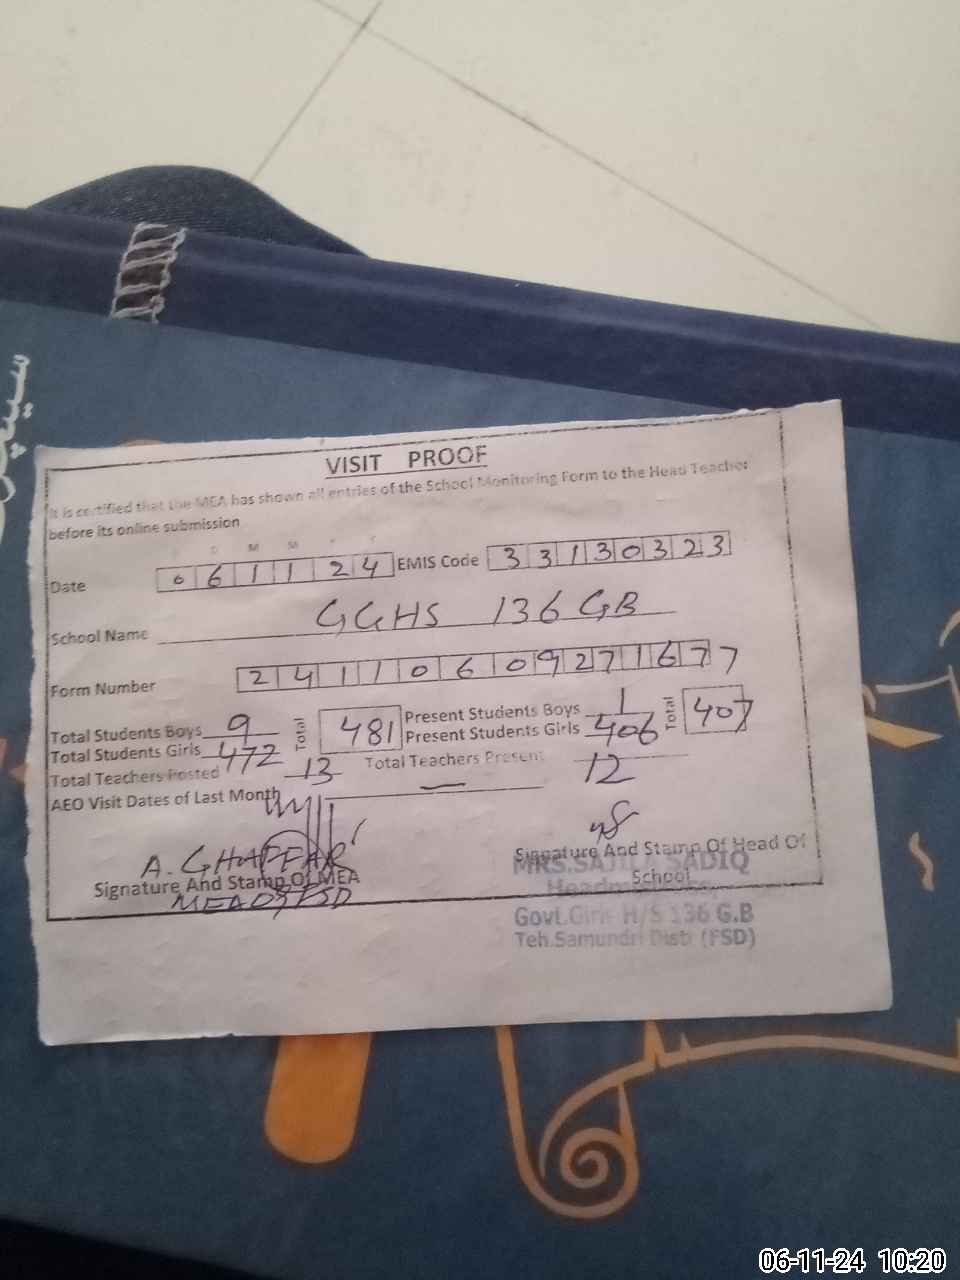 VISIT PROOF
It is certified that the MEA has shown all entries of the School Monitoring Form to the Head Teacher
before its online submission
D M M
Date 0 6 1 1 2 4 EMIS Code 3 3 1 3 0 3 2 3
School Name GGHS 136 GB
Form Number 2 4 1 1 0 6 0 9 2 7 1 6 7 7
Total Students Boys 9 Total 481 Present Students Boys 1 Total 407
Total Students Girls 472 Present Students Girls 406
Total Teachers Posted 13 Total Teachers Present 12
AEO Visit Dates of Last Month —
A. GHAFFAR
Signature And Stamp Of MEA
Signature And Stamp Of Head Of
School
MRS.SAJILA SADIQ
Govt.Girls H/S 136 G.B
Teh.Samundri Distt (FSD)
06-11-24 10:20